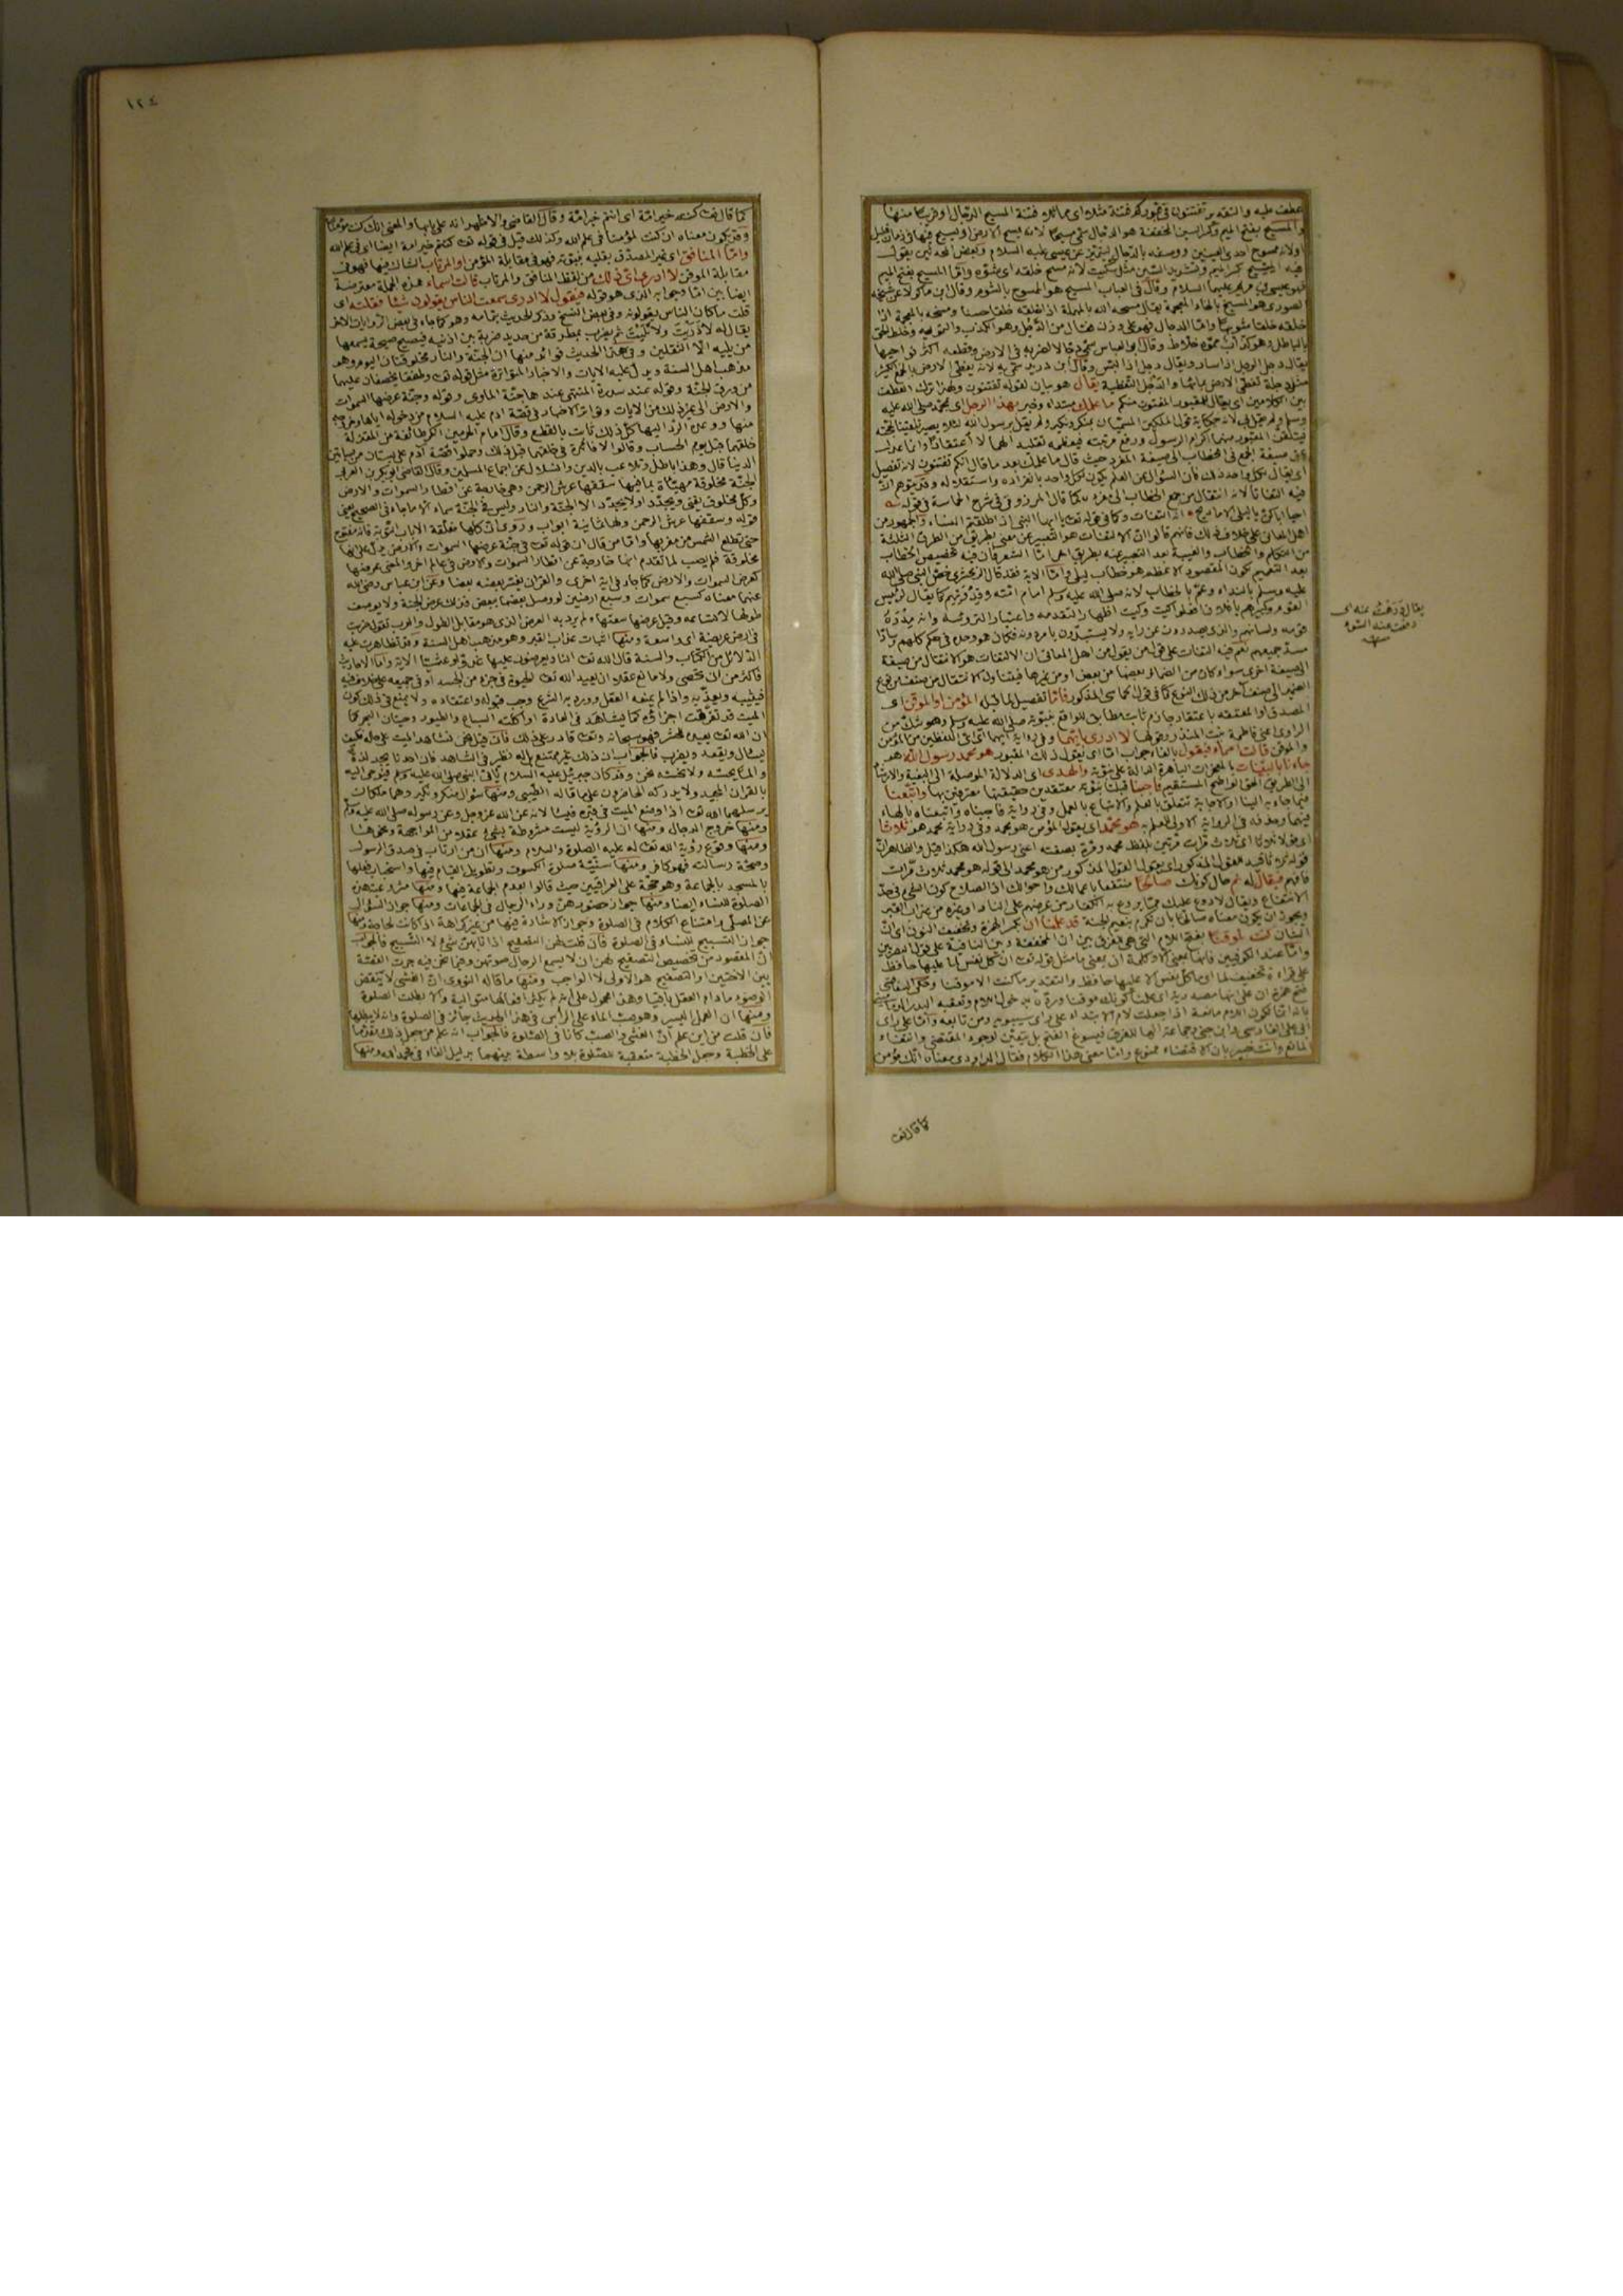 عطف عليه والتقدير تفتنون في قبوركم فتنة مثلا اى مماثلا فتنة المسيح الدجال او قريبا منها
والمسيح بفتح الميم وكسر السين المخففة هو الدجال سمى مسيحا لانه يمسح الارض او يسيح فيها في زمان قليل
او لانه ممسوح احدى العينين ووصفه بالدجال ليتميز عن عيسى عليه السلام وبعض المحدثين يقول
فيه المسيح بكسر الميم وتشديد السين مثل سكيت لانه مسح خلقه اى شوه واما المسيح بفتح الميم
فهو عيسى بن مريم عليهما السلام وقال في العباب المسيح هو الممسوح بالشوم وقال ابن ماكولا عن شيخه
الصورى هو المسيخ بالخاء المعجمة يقال مسحه الله بالمهملة اذا خلقه خلقا حسنا ومسخه بالمعجمة اذا
خلقه خلقا مشوها واما الدجال فهو على وزن فعال من الدجل وهو الكذب والتمويه وخلط الحق
بالباطل وهو كذاب مموه خلاط وقال ابو العباس سمى دجالا لضربه في الارض وقطعه اكثر نواحيها
يقال دجل الرجل اذا سار ويقال دجل اذا لبس وقال ابن دريد سمى به لانه يغطى الارض بالجمع الكثير
مثل دجلة تغطى الارض بمائها والدجل التغطية يقال هو بيان لقوله تفتنون ولهذا ترك العطف
بين الكلامين اى يقال للمقبور المفتون منكم ما علمك مبتداء وخبر بهذا الرجل اى محمد صلى الله عليه
وسلم ولم يقل بى لانه حكاية قول الملكين المسميان بمنكر ونكير ولم يقل برسول الله لئلا يصير تلقينا لحجته
فيتلقن المقبور منهما اكرام الرسول ورفع مرتبته فيعظمه تقليدا لهما لا اعتقادا وانما عدل
عن صيغة الجمع في الخطاب الى صيغة المفرد حيث قال ما علمك بعد ما قال انكم تفتنون لانه تفصيل
اى يقال لكل واحد ذلك فان السؤال عن العلم يكون لكل واحد بانفراده واستقلاله وقد يتوهم ان
فيه التفاتا لانه انتقال من جمع الخطاب الى مفرده كما قال المرزوقى في شرح الحماسة في قوله
احيا اباكن يا ليلى الاماديح انه التفات وكما في قوله تعـ يا ايها النبى اذا طلقتم النساء والجمهور من
اهل المعانى على خلاف ذلك فانهم قالوا ان الالتفات هو التعبير عن معنى بطريق من الطرق الثلثة
من التكلم والخطاب والغيبة بعد التعبير عنه بطريق آخر اما الشعر فان فيه تخصيص الخطاب
بعد التعميم لكون المقصود الاعظم هو خطاب ليلى واما الاية فقد قال الزمخشرى خص النبى صلى الله
عليه وسلم بالنداء وعم بالخطاب لانه صلى الله عليه وسلم امام امته وقدوتهم كما يقال لرئيس
القوم وكبيرهم يا فلان افعلوا كيت وكيت اظهارا لتقدمه واعتبارا لترؤسه وانه مدره
قومه ولسانهم والذى يصدرون عن رايه ولا يستبدون بامر دونه فكان هو وحده في حكم كلهم وسادا
مسد جميعهم نعم فيه التفات على قول من يقول من اهل المعانى ان الالتفات هو الانتقال من صيغة
الى صيغة اخرى سواء كان من الضمائر بعضها من بعض او من غيرها
فاما تفصيل لما قبله المؤمن او الموقن اى
المصدق او المعتقد باعتقاد جازم ثابت مطابق للواقع بنبوته صلى الله عليه وسلم وهو شك من
الراوى اعنى فاطمة بنت المنذر وقولها لا ادرى بايهما وفي رواية ايهما اى اى اللفظين من المؤمن
والموقن قالت اسماء فيقول بالفاء جواب اما اى يقول ذلك المقبور هو محمد رسول الله هو
جاءنا بالبينات بالمعجزات الباهرة الدالة على نبوته والهدى اى الدلالة الموصلة الى البغية والارشاد
الى الطريق الحق الواضح المستقيم فاجبنا قبلنا نبوته معتقدين حقيقتها معترفين بها واتبعنا
فيما جاء به الينا او الاجابة تتعلق بالعلم والاتباع بالعمل وفي رواية فاجبناه واتبعناه بالهاء
فيهما وحذفه في الرواية الاولى للعلم به هو محمد اى يقول المؤمن هو محمد وفي رواية محمد هو ثلاثا
اى قولا ثلاثا اى ثلاث مرات مرتين بلفظ محمد ومرة بصفته اعنى رسول الله هكذا قيل والظاهر ان
قوله ثلاثا قيد للقول المذكور اى يقول القول المذكور من هو محمد الى قوله هو محمد ثلاث مرات
فافهم فيقال له نم حال كونك صالحا منتفعا باعمالك واحوالك اذ الصلاح كون الشئ في حد
الانتفاع ويقال لا روع عليك مما يروع به الكفار من عرضهم على النار او غيره من عذاب القبر
ويجوز ان يكون معناه صالحا بان تكرم بنعيم الجنة قد علمنا ان بكسر الهمزة وتخفيف النون اى ان
الشان كنت لموقنا بفتح اللام التى هي للفرق بين ان المخففة وبين النافية على قول البصريين
واما عند الكوفيين فانها بمعنى الا وكلمة ان بمعنى ما مثل قوله تعـ ان كل نفس لما عليها حافظ
على قراءة تخفيف لما اى ما كل نفس الا عليها حافظ والتقدير ما كنت الا موقنا وحكى السفاقسى
فتح همزة ان على انها مصدرية اى علمنا كونك موقنا ورده بدخول اللام وتعقبه البدر الدمامينى
بانه انما تكون اللام مانعة اذا جعلت لام الابتداء على راى سيبويه ومن تابعه واما على راى
ابى على الفارسى وابن جنى وجماعة انها للفرق فيسوغ الفتح بل يتعين لوجود المقتضى وانتفاء
المانع وانت خبير بان الاقتضاء ممنوع واما معنى هذا الكلام فقال الداودى معناه انك مؤمن
يقال درهت عنه اى
دفعت عنه الشوم
منه
كما قال تعـ
١٢٤
كما قال تعـ كنتم خير امة اى انتم خير امة وقال القاضى والاظهر انه على بابها والمعنى انك كنت مؤمنا
وقد يكون معناه ان كنت لمؤمنا في علم الله وكذلك قيل في قوله تعـ كنتم خير امة ايضا اى في علم الله
واما المنافق اى غير المصدق بقلبه بنبوته فهو في مقابلة المؤمن او المرتاب الشاك فيها فهو في
مقابلة الموقن لا ادرى اى ذلك من لفظ المنافق والمرتاب قالت اسماء هذه الجملة معترضة
ايضا بين اما وجوابه الذى هو قوله فيقول لا ادرى سمعت الناس يقولون شيئا فقلته اى
قلت ما كان الناس يقولونه وفي بعض النسخ وذكر الحديث بتمامه وهو كما جاء في بعض الروايات الاخر
يقال له لا دريت ولا تليت ثم يضرب بمطرقة من حديد ضربة بين اذنيه فيصيح صيحة يسمعها
من يليه الا الثقلين وفي هذا الحديث فوائد منها ان الجنة والنار مخلوقتان اليوم وهو
مذهب اهل السنة ويدل عليه الايات والاخبار المتواترة مثل قوله تعـ وطفقا يخصفان عليهما
من ورق الجنة وقوله عند سدرة المنتهى عندها جنة الماوى وقوله وجنة عرضها السموات
والارض الى غير ذلك من الايات وتواتر الاخبار في قصة آدم عليه السلام من دخوله اياها وخروجه
منها ووعد الرد اليها كل ذلك ثابت بالقطع وقال امام الحرمين انكر طائفة من المعتزلة
خلقهما قبل يوم الحساب وقالوا لا فائدة في خلقهما قبل ذلك وحملوا قصة آدم على بستان من بساتين
الدنيا قال وهذا باطل وتلاعب بالدين وانسلال عن اجماع المسلمين وقال القاضى ابو بكر بن العربى
الجنة مخلوقة مهيأة بما فيها سقفها عرش الرحمن وهي خارجة عن اقطار السموات والارض
وكل مخلوق يفنى ويجدد او لا يجدد الا الجنة والنار وليس في الجنة سماء الا ما جاء في الصحيح يعنى
قوله وسقفها عرش الرحمن ولها ثمانية ابواب وروى ان كلها مغلقة الا باب التوبة فانه مفتوح
حتى تطلع الشمس من مغربها واما من قال ان قوله تعـ في جنة عرضها السموات والارض يدل على انها
مخلوقة فلم يصب لما تقدم انها خارجة عن اقطار السموات والارض في عالم آخر والمعنى عرضها
كعرض السموات والارض كما جاء في اية اخرى والقرآن يفسر بعضه بعضا وعن ابن عباس رضى الله
عنهما معناه كسبع سموات وسبع ارضين لو وصل بعضها ببعض فذلك عرض الجنة ولا يوصف
طولها لاتساعه وقيل عرضها سعتها ولم يرد به العرض الذى هو مقابل الطول والعرب تقول ضربت
في ارض عريضة اى واسعة ومنها اثبات عذاب القبر وهو مذهب اهل السنة وقد تظاهرت عليه
الدلائل من الكتاب والسنة قال الله تعـ النار يعرضون عليها غدوا وعشيا الاية واما الاحاديث
فاكثر من ان تحصى ولا مانع عقلا ان يعيد الله تعـ الحيوة في جزء من الجسد او في جميعه على خلاف فيه
فيثيبه ويعذبه واذا لم يمنعه العقل وورد به الشرع وجب قبوله واعتقاده ولا يمنع في ذلك كون
الميت قد تفرقت اجزاؤه كما يشاهد في العادة او اكلته السباع والطيور وحيتان البحر كما
ان الله تعـ يعيده للحشر فهو سبحانه وتعـ قادر على ذلك فان قيل فنحن نشاهد الميت على حاله فكيف
يسأل ويقعد ويضرب فالجواب ان ذلك غير ممتنع بل له نظير في الشاهد فان احدنا يجد لذة
والما يحسه ولا نحسه نحن وقد كان جبرئيل عليه السلام ياتى النبى صلى الله عليه وسلم فيوحى اليه
بالقران المجيد ولا يدركه الحاضرون على ما قاله الطيبى ومنها سؤال منكر ونكير وهما ملكان
يرسلهما الله تعـ اذا وضع الميت في قبره فيسألانه عن الله عز وجل وعن رسوله صلى الله عليه وسلم
ومنها خروج الدجال ومنها ان الرؤية ليست مشروطة بشئ عقلا من المواجهة ونحوها
ومنها وقوع رؤية الله تعـ له عليه الصلوة والسلام ومنها ان من ارتاب في صدق الرسول
وصحة رسالته فهو كافر ومنها سنية صلوة الكسوف وتطويل القيام فيها واستحباب فعلها
بالمسجد بالجماعة وهو حجة على العراقيين حيث قالوا بعدم الجماعة فيها ومنها مشروعية هذه
الصلوة للنساء ايضا ومنها جواز حضورهن وراء الرجال في الجماعات ومنها جواز السؤال
عن المصلى وامتناع الكلام في الصلوة وجواز الاشارة فيها من غير كراهة اذا كانت لحاجة ومنها
جواز التسبيح للنساء في الصلوة فان قلت لهن التصفيح اذا نابهن شئ لا التسبيح فالجواب
ان المقصود من تخصيص التصفيح لهن ان لا يسمع الرجال صوتهن وفيما نحن فيه جرت القصة
بين الاختين او التصفيح هو الاولى لا الواجب ومنها ما قاله النووى ان الغشى لا ينقض
الوضوء ما دام العقل باقيا وهذا محمول على انه لم يكثر افعالها متوالية والا بطلت الصلوة
ومنها ان العمل اليسير وهو صب الماء على الراس في هذا الحديث جائز في الصلوة وانه لا يبطلها
فان قلت من اين علم ان الغشى والصب كانا في الصلوة فالجواب انه علم من جعل ذلك مقدما
على الخطبة وجعل الخطبة متعقبة للصلوة بلا واسطة بينهما بدليل الفاء في فحمد الله ومنها